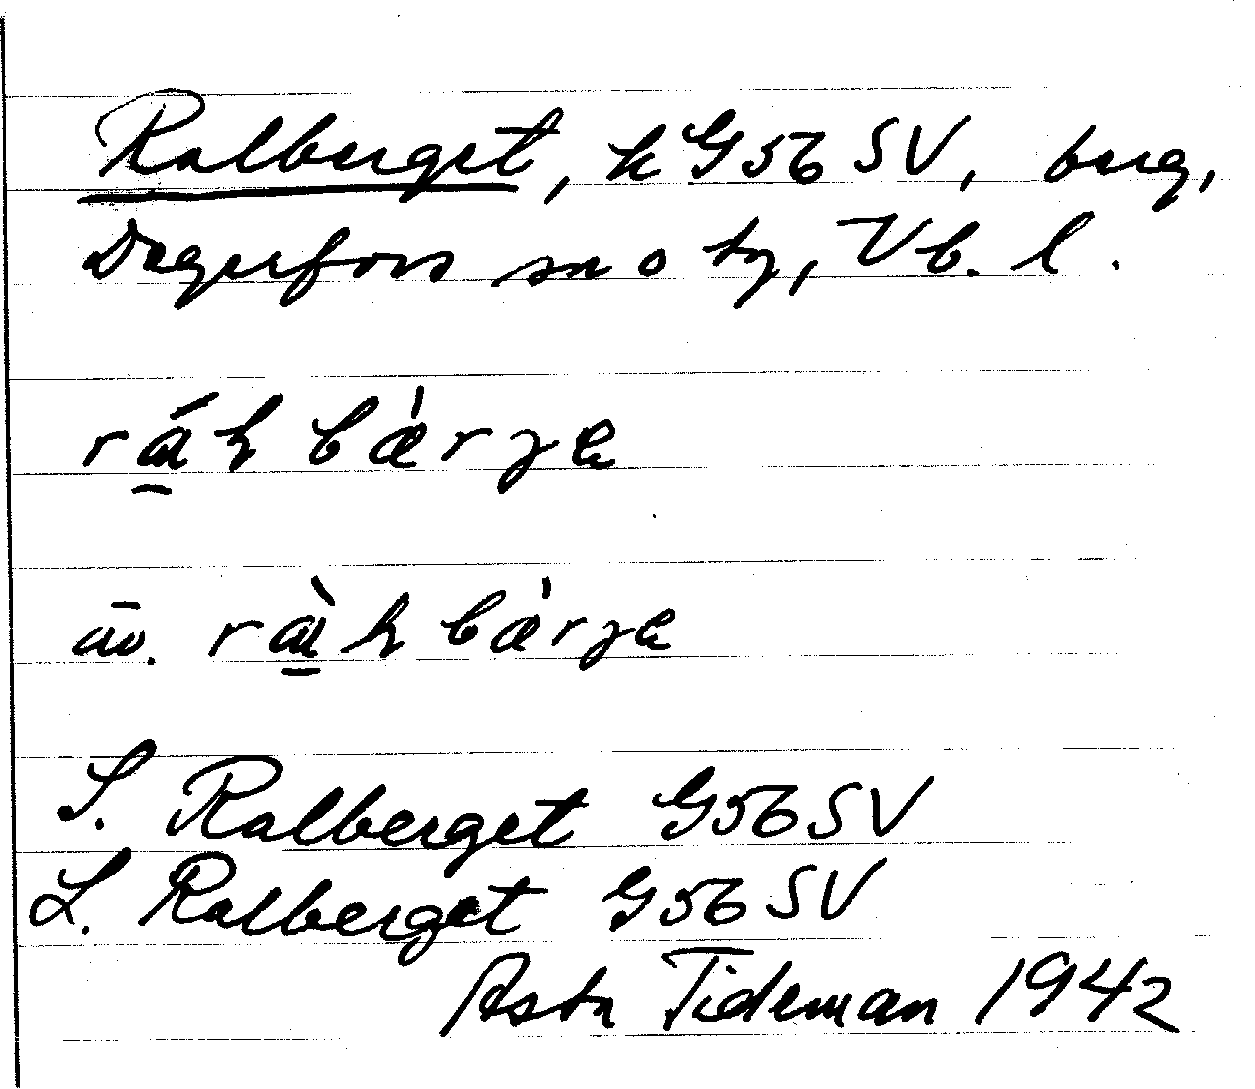 Ralberget, k G56 SV, berg,
Degerfors sn o tg, Vb. l.
rá̱ɫbæ̀rγe
äv. rà̱ɫbæ̀rγe
S. Ralberget G56 SV
L. Ralberget G56 SV
Asta Tideman 1942